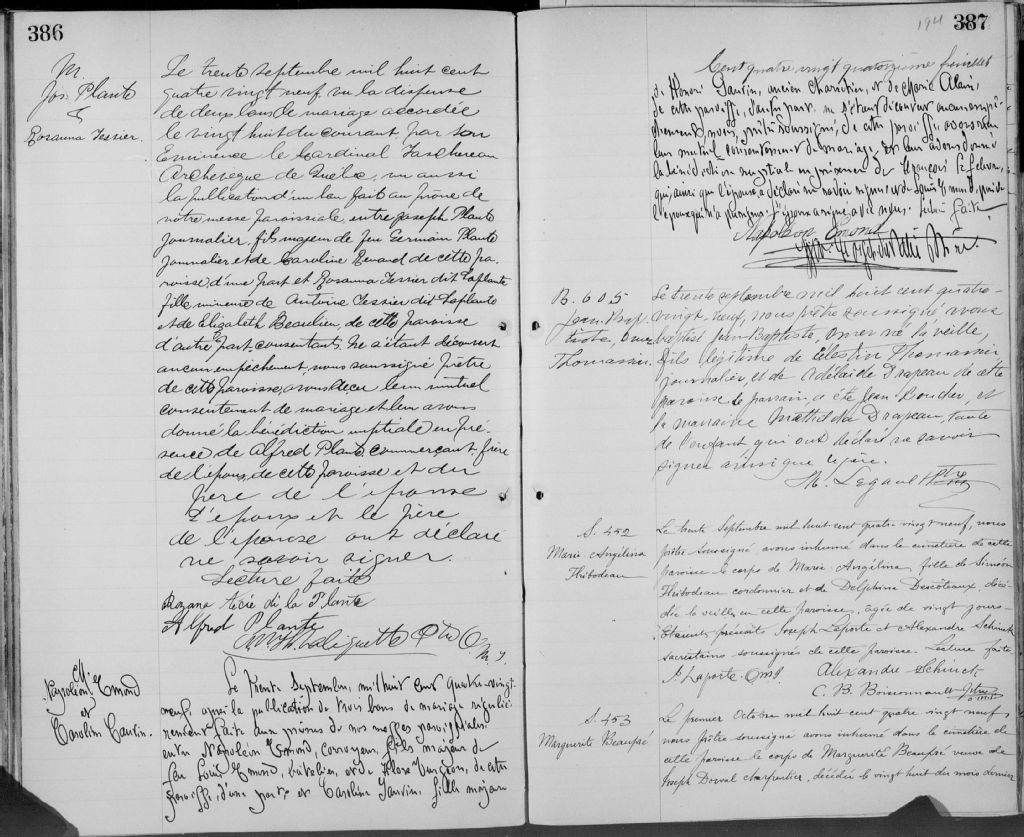 386
M.
Jos. Plante
&
Rosanna Tessier.
Le trente septembre mil huit cent
quatre vingt neuf, vu la dispense
de deux bans de mariage accordée
le vingt huit du courant, par son
Eminence le Cardinal Taschereau
Archevêque de Québec, vu aussi
la publication d'un ban fait au prône de
notre messe paroissiale, entre Joseph Plante
journalier, fils majeur de feu Germain Plante
journalier et de Caroline Renaud de cette pa-
roisse d'une part et Rosanna Tessier dit Laplante
fille mineure de Antoine Tessier dit Laplante
et de Elizabeth Beaulieu, de cette paroisse
d'autre part, consentants. Ne s'étant découvert
aucun empêchement, nous soussigné prêtre
de cette paroisse, avons reçu leur mutuel
consentement de mariage et leur avons
donné la bénédiction nuptiale en pré-
sence de Alfred Plante commerçant frère
de l'époux, de cette paroisse et du
père de l'épouse
L'époux et le père
de l'épouse ont déclaré
ne savoir signer.
Lecture faite
Rozana di la Plante
Alfred Plante
Valiquette Ptre O.M.I.
M.
Napoléon Emond
et
Caroline Gauvin.
Le trente Septembre, mil huit cent quatre-vingt-
neuf, après la publication de trois bans de mariage réguliè-
rement faite aux prônes de nos messes paroissiales
entre Napoléon Emond, corroyeur, fils majeur de
feu Louis Emond, hôtelier, et de Turgeon, de cette
paroisse, d'une part et Caroline Gauvin, fille majeure
194 387
Cent quatre vingt quatorzième feuillet
d'Honoré Gauvin, ancien charretier, et de Marie Alain,
de cette paroisse, d'autre part, ne s'étant découvert aucun empê-
chement, nous, prêtre soussigné, de cette paroisse, avons reçu
leur mutuel consentement de mariage, et leur avons donné
la bénédiction nuptiale en présence de François Lefebvre,
qui, ainsi que l'épouse, a déclaré ne savoir signer, et de Louis Emond,
L'époux a signé avec nous. Lecture faite.
Napoléon Emond
B. 605
Jean-Bap-
tiste, Omer
Thomassin.
Le trente septembre mil huit cent quatre-
vingt-neuf, nous prêtre soussigné avons
baptisé Jean-Baptiste, Omer né la veille,
fils légitime de Célestin Thomassin
journalier, et de Adélaïde Drapeau de cette
paroisse. Le parrain a été Jean Boucher, et
la marraine Mathilda Drapeau, tante
de l'enfant qui ont déclaré ne savoir
signer ainsi que le père.
H. Legault Ptre
S. 452
Marie Angelina
Thibodeau
Le trente Septembre mil huit cent quatre vingt neuf, nous
prêtre soussigné avons inhumé dans le cimetière de cette
paroisse le corps de Marie Angélina, fille de Siméon
Thibodeau cordonnier et de Delphine Descoteaux, décé-
dée la veille en cette paroisse, agée de vingt jours.
Etaient présents Joseph Laporte et Alexandre Schinck
sacristains soussignés de cette paroisse. Lecture faite.
Js Laporte Alexandre Schinck
C. B. Boissonnault Ptre
S. 453
Marguerite Beaupré
Le premier Octobre mil huit cent quatre vingt neuf,
nous prêtre soussigné avons inhumé dans le cimetière de
cette paroisse le corps de Marguerite Beaupré veuve de
Joseph Dorval charpentier, décédée le vingt huit du mois dernier